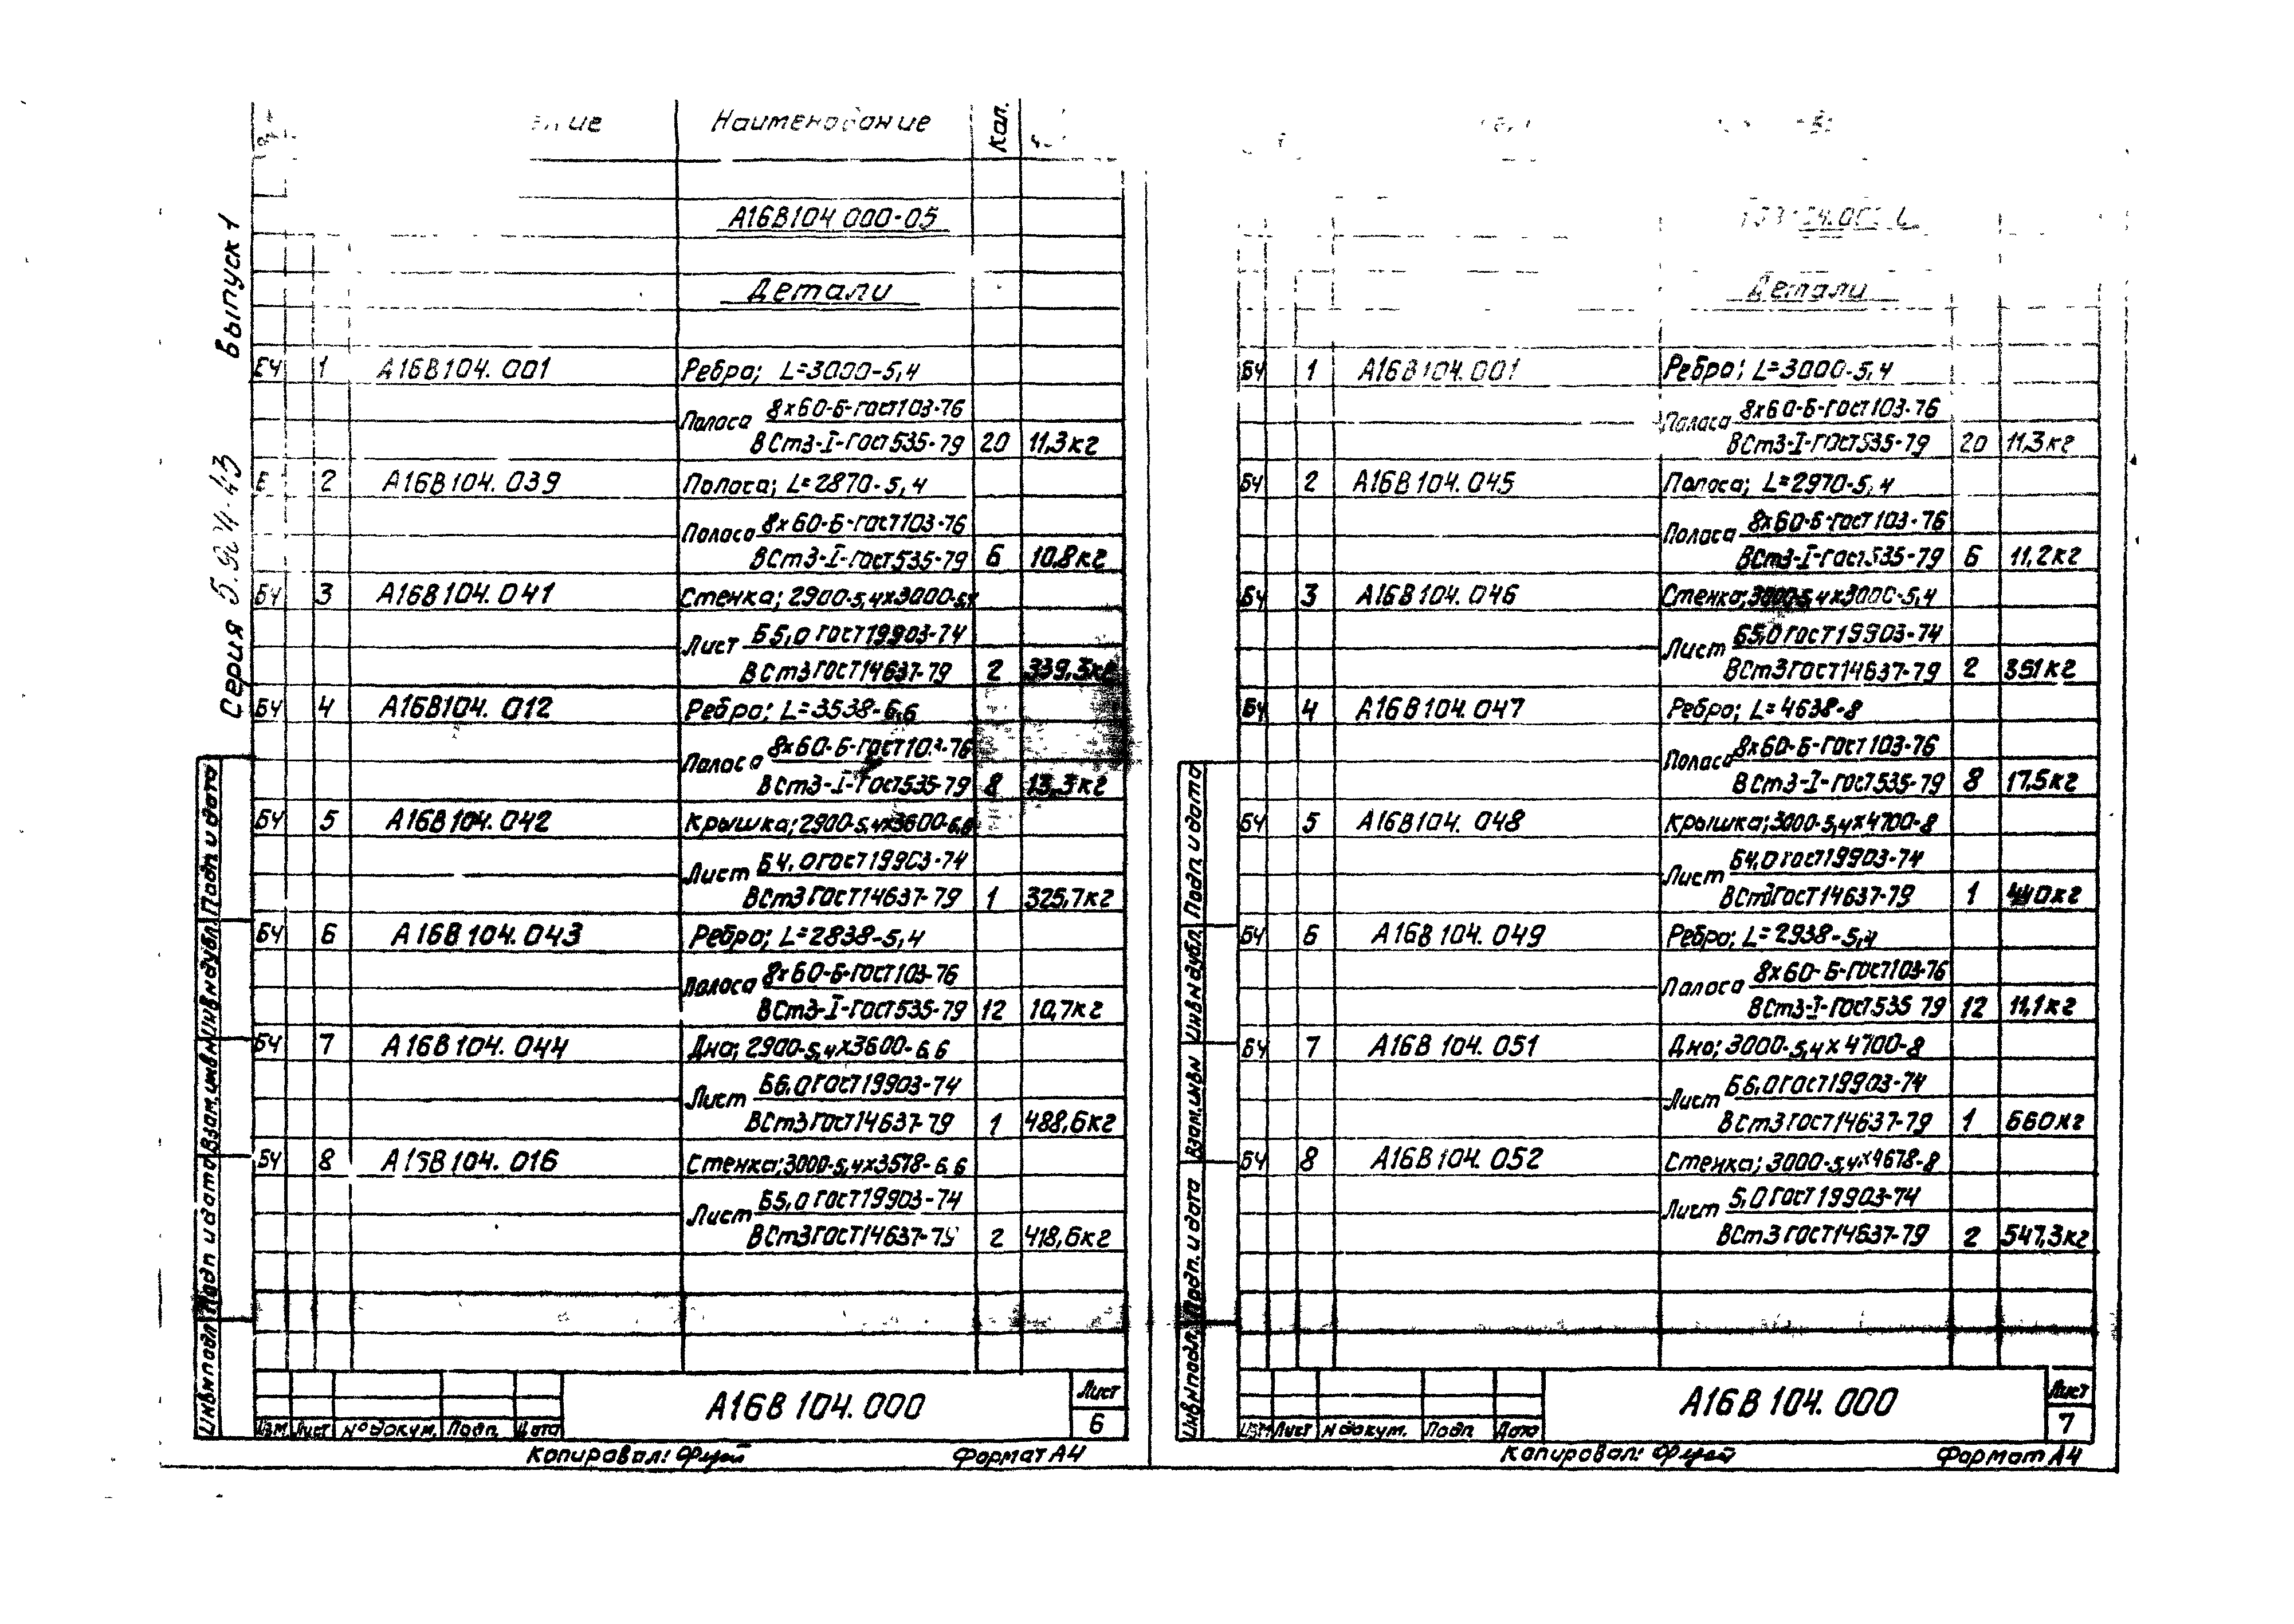 Серия 5.904-43 Выпуск 1
Наименование Кол.
А16В104.000-05
Детали
БЧ 1 А16В104.001 Ребро; L=3000-5,4
Полоса 8х60-Б-ГОСТ103-76
ВСт3-I-ГОСТ535-79 20 11,3кг
2 А16В104.039 Полоса; L=2870-5,4
Полоса 8х60-Б-ГОСТ103-76
ВСт3-I-ГОСТ535-79 6 10,8кг
БЧ 3 А16В104.041 Стенка; 2900-5,4х3000-5,4
Лист Б5,0 ГОСТ19903-74
ВСт3ГОСТ14637-79 2 339,3кг
БЧ 4 А16В104.012 Ребро; L=3538-6,6
Полоса 8х60-Б-ГОСТ103-76
ВСт3-I-ГОСТ535-79 8 13,3кг
БЧ 5 А16В104.042 Крышка; 2900-5,4х3600-6,6
Лист Б4,0ГОСТ19903-74
ВСт3ГОСТ14637-79 1 325,7кг
БЧ 6 А16В104.043 Ребро; L=2838-5,4
Полоса 8х60-Б-ГОСТ103-76
ВСт3-I-ГОСТ535-79 12 10,7кг
БЧ 7 А16В104.044 Дно; 2900-5,4х3600-6,6
Лист Б6,0ГОСТ19903-74
ВСт3ГОСТ14637-79 1 488,6кг
БЧ 8 А16В104.016 Стенка; 3000-5,4х3578-6,6
Лист Б5,0 ГОСТ19903-74
ВСт3ГОСТ14637-79 2 418,6кг
Инв.№подл. Подп. и дата Взам.инв.№ Инв.№дубл. Подп. и дата
Изм Лист №докум. Подп. Дата
А16В 104.000
Лист
6
Копировал: Формат А4
Детали
БЧ 1 А16В104.001 Ребро; L=3000-5,4
Полоса 8х60-Б-ГОСТ103-76
ВСт3-I-ГОСТ535-79 20 11,3кг
БЧ 2 А16В104.045 Полоса; L=2970-5,4
Полоса 8х60-Б-ГОСТ103-76
ВСт3-I-ГОСТ535-79 6 11,2кг
БЧ 3 А16В104.046 Стенка; 3000-5,4х3000-5,4
Лист Б5,0ГОСТ19903-74
ВСт3ГОСТ14637-79 2 351кг
БЧ 4 А16В104.047 Ребро; L=4638-8
Полоса 8х60-Б-ГОСТ103-76
ВСт3-I-ГОСТ535-79 8 17,5кг
БЧ 5 А16В104.048 Крышка; 3000-5,4х4700-8
Лист Б4,0ГОСТ19903-74
ВСт3ГОСТ14637-79 1 440кг
БЧ 6 А16В104.049 Ребро; L=2938-5,4
Полоса 8х60-Б-ГОСТ103-76
ВСт3-I-ГОСТ535 79 12 11,1кг
БЧ 7 А16В104.051 Дно; 3000-5,4х4700-8
Лист Б6,0ГОСТ19903-74
ВСт3ГОСТ14637-79 1 660кг
БЧ 8 А16В104.052 Стенка; 3000-5,4х4678-8
Лист 5,0ГОСТ19903-74
ВСт3ГОСТ14637-79 2 547,3кг
Инв.№подл. Подп. и дата Взам.инв.№ Инв.№дубл. Подп. и дата
Изм Лист №докум. Подп Дата
А16В 104.000
Лист
7
Копировал: Формат А4